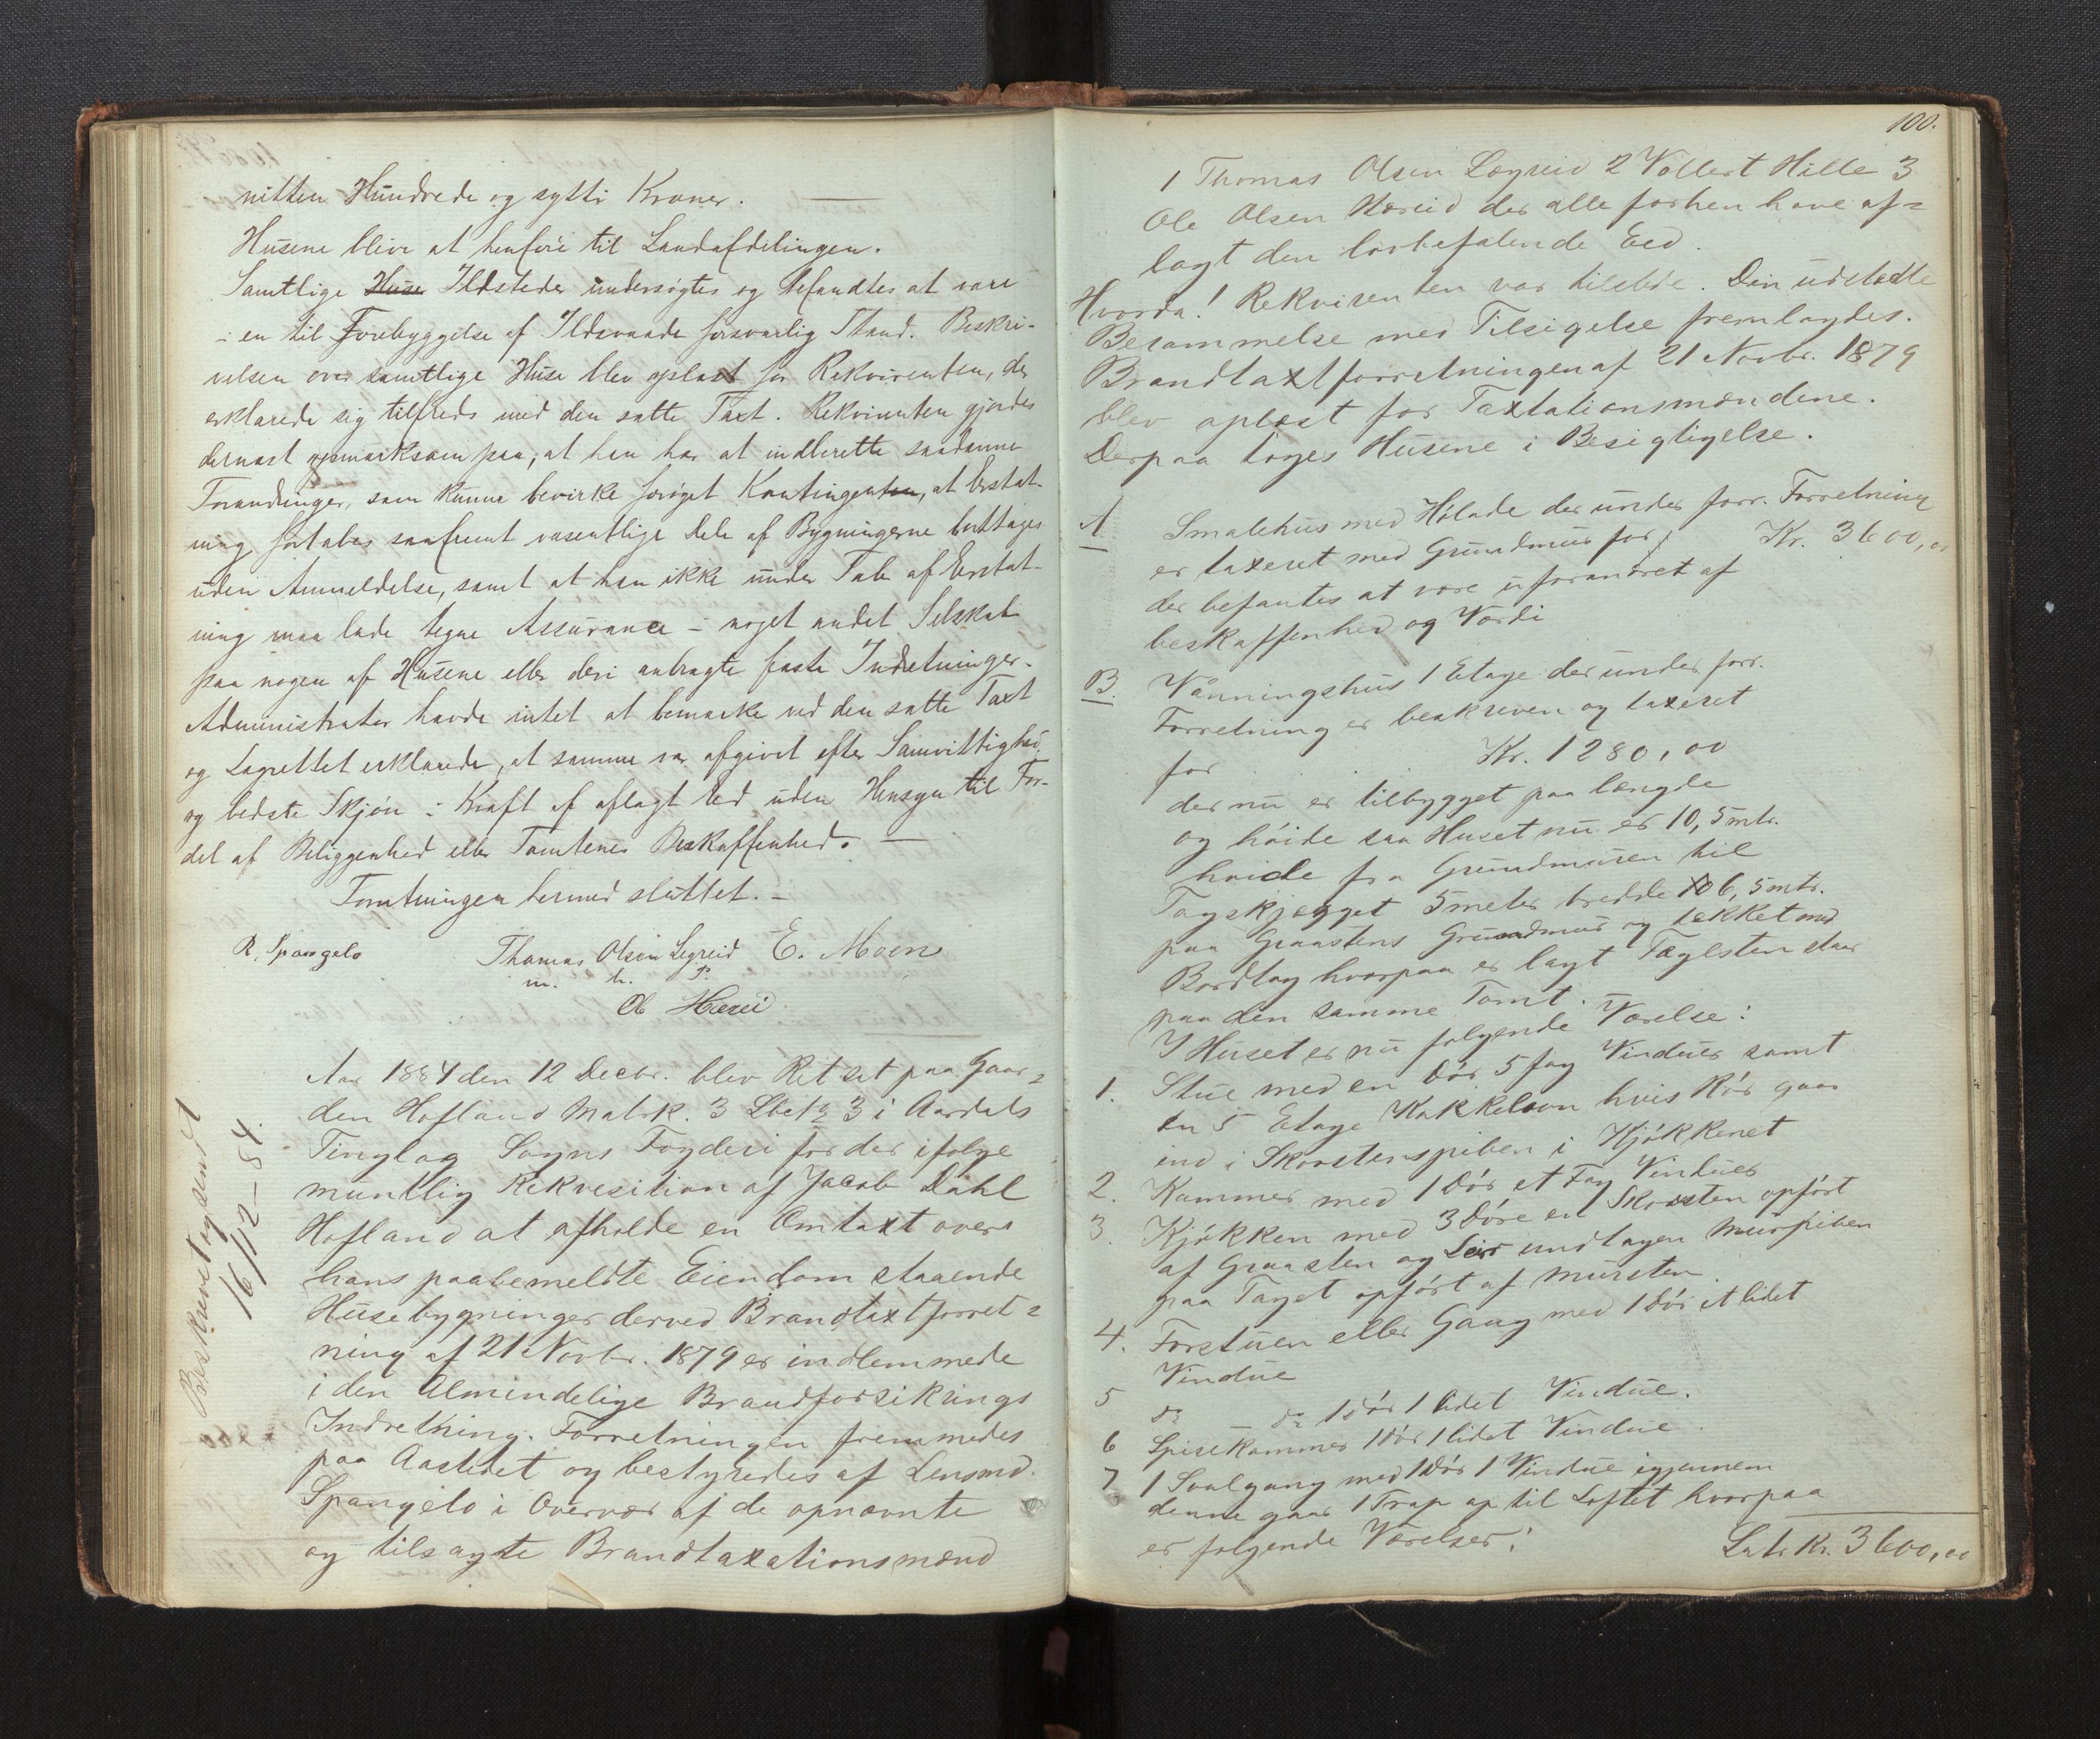 nitten Hundrede og sytti Kroner.
Husene blive at henføre til Landafdelingen.
Samtlige Huse Ildsteder undersøgtes og befandtes at være
i en til Forebyggelse af Ildsvaade forsvarlig Stand. Beskri-
velsen over samtlige Huse blev oplæst for Rekvirenten, der
erklærede sig tilfreds med den satte Taxt. Rekvirenten gjordes
dernæst opmærksom paa, at han har at indberette saadanne
Forandringer, som kunne bevirke forøget Kontingenten, at Erstat-
ning fortabes saafremt væsentlige Dele af Bygningerne borttages
uden Anmeldelse, samt at han ikke under Tab af Erstat-
ning maa lade tegne Assurance i noget andet Selskab
paa nogen af Husene eller deri anbragte faste Indretninger.
Administrator havde intet at bemærke ved den satte Taxt
og Lagrettet erklærede, at samme var afgivet efter Samvittighed
og bedste Skjøn i Kraft af aflagt Ed uden Hensyn til For-
del af Beliggenhed eller Tomtenes Beskaffenhed. —
Forretningen hermed sluttet. -
R. Spangelo Thomas Olsen Legreid E. Moen
m. h. P.
Ol Hæreid
Beskrevet og sendt
16/12 - 84.
Aar 1884 den 12 Decbr. blev Ret sat paa Gaar=
den Hofland Matrk. 3 Lbk No 3 i Aardals
Tinglag Sogns Fogderi for der ifølge
muntlig Rekvesition af Jacob Dahl
Hofland at afholde en Omtaxt over
hans paabemeldte Eiendom staaende
Husebygninger derved Brandtaxtforret=
ning af 21 Novbr. 1879 er indlemmede
i den Almindelige Brandforsikrings
Indretning. Forretningen fremmedes
paa Aastedet og bestyredes af Lensmd.
Spangelo i Overvær af de opnævnte
og tilsagte Brandtaxationsmænd
100.
1 Thomas Olsen Lægreid 2 Vollert Hille 3
Ole Olsen Hæreid der alle forhen have af=
lagt den lovbefalende Eed.
Hvorda! Rekvirenten var tilstede. Den udstædte
Berammelse med Tilsigelse fremlagdes.
Brandtaxtforretningen af 21 Novbr. 1879
blev oplæst for Taxtationsmændene.
Derpaa toges Husene i Besigtigelse.
A Smalehus med Hølade der under forr. Forretning
er taxeret med Grundmur for, Kr. 3600,00
der befantes at være uforandret af
beskaffenhed og Værdi
B. Vånningshus 1 Etage der under forr.
Forretning er beskreven og taxeret
for Kr. 1280,00
der nu er tilbygget paa længde
og høide saa Huset nu er 10,5 mtr.
høide fra Grundmuren til
Tagskjægget 5 meter bredde 6,5 mtr.
paa Graastens Grundmur og tækket med
Bordtag hvorpaa er lagt Taglsten staar
paa den samme Tomt.
I Huset er nu følgende Værelse:
1. Stue med en Dør 5 fag Vinduer samt
en 5 Etage Kakkelovn hvis Rør gaar
ind i Skorstenspiben i Kjøkkenet
2. Kammer med 1 Dør et Fag Vinduer
3. Kjøkken med 3 Døre en Skorsten opført
af Graasten og Leir undtagen Murpiben
paa Taget opført af mursten.
4. Forstuen eller Gang med 1 Dør et lidet
Vindue
5 do — do 1 dør 1 lidet Vindue.
6 Spisekammer 1 Dør 1 lidet Vindue.
7 1 Svalgang med 1 Dør 1 Vindue igjennem
denne gaar 1 Trap op til Loftet hvorpaa
er følgende Værelser: Latr. Kr. 3600,00